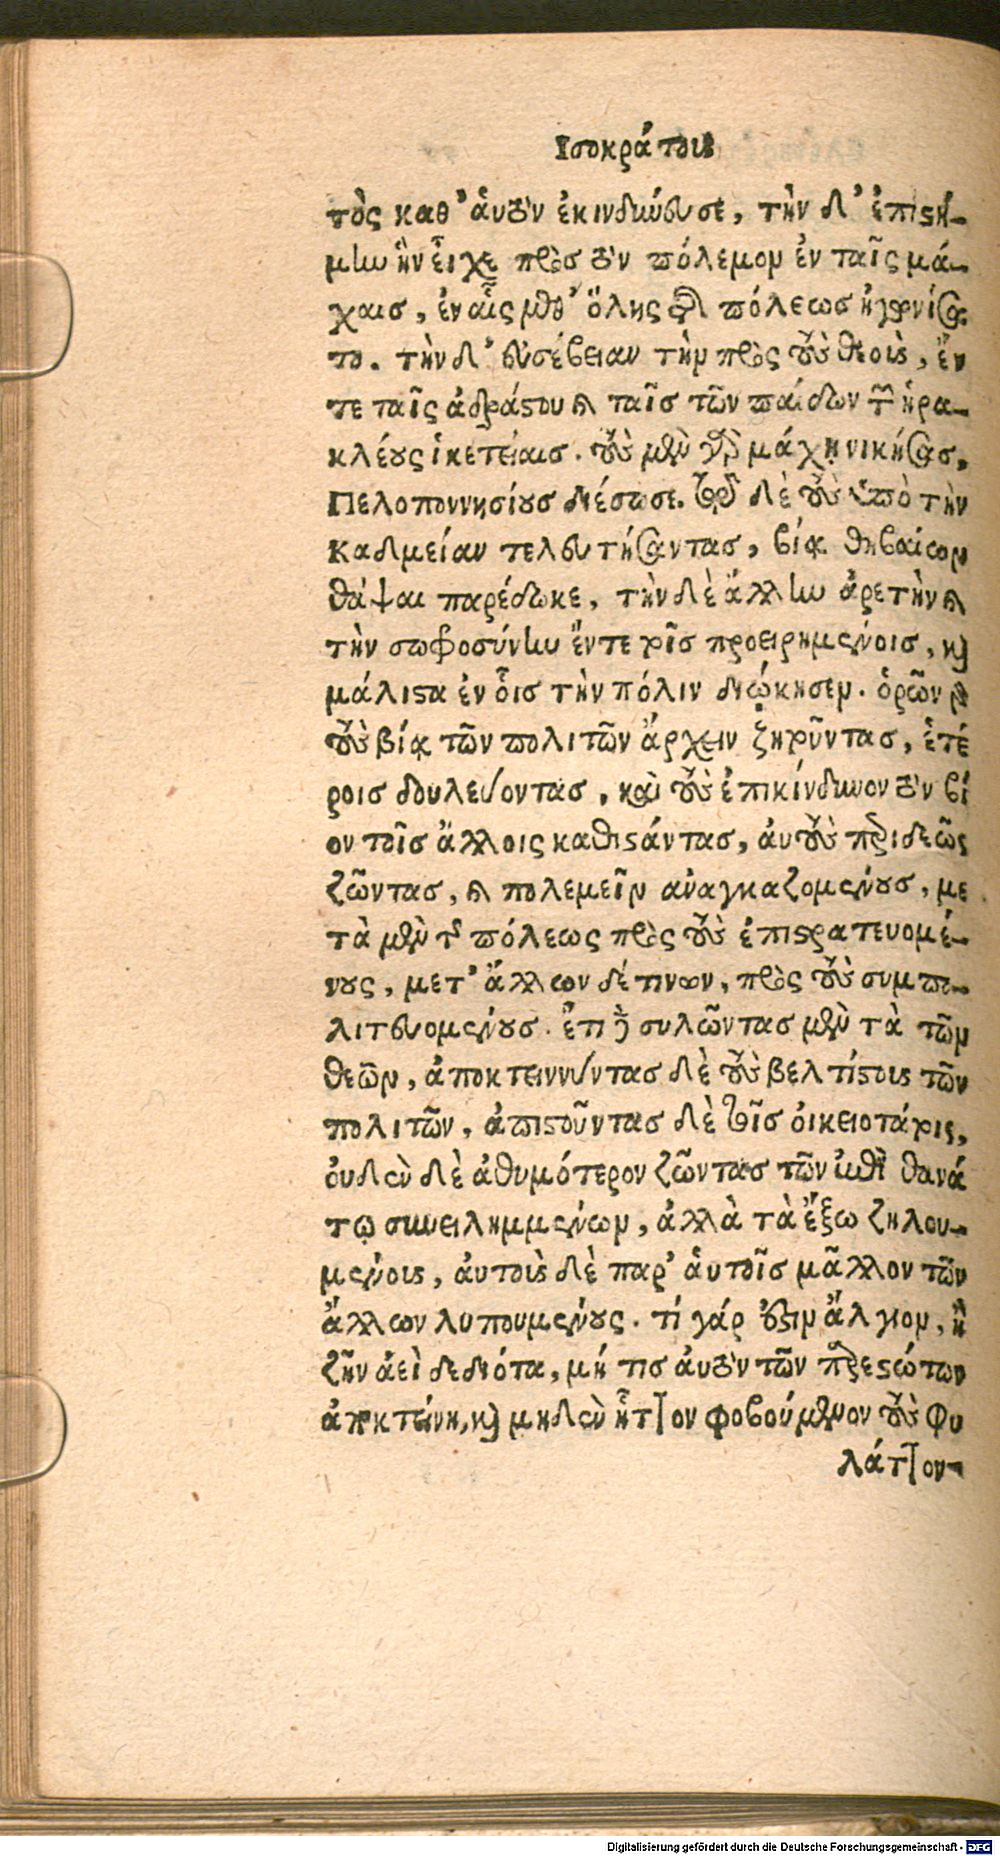 Ισοκράτους
τὸς καθ' ἁυτὸν ἐκινδύνευσε, τὴν δ' ἐπιστή-
μην ἣν εἶχε πρὸς τὸν πόλεμον ἐν ταῖς μά-
χαις, ἐν αἷς μεθ' ὅλης τῆς πόλεως ἠγωνίσα-
το. τὴν δ' ἐυσέβειαν τὴν πρὸς τοὺς θεοὺς, ἔν
τε ταῖς ἀδράστου καὶ ταῖς τῶν παίδων τῶν ἡρα-
κλέους ἱκετείαις. τοὺς μὲν γὰρ μάχῃ νικήσας,
Πελοποννησίους διέσωσε. τοὺς δὲ ὑπὸ τὴν
Καδμείαν τελευτήσαντας, βίᾳ θηβαίων
θάψαι παρέδωκε, τὴν δὲ ἄλλην ἀρετὴν καὶ
τὴν σωφροσύνην ἔν τε τοῖς προειρημένοις, καὶ
μάλιστα ἐν οἷς τὴν πόλιν διῴκησεν. ὁρῶν γὰρ
τοὺς βίᾳ τῶν πολιτῶν ἄρχειν ζητοῦντας, ἑτέ
ροις δουλεύοντας, καὶ τοὺς ἐπικίνδυνον τὸν βί
ον τοῖς ἄλλοις καθιστάντας, ἀυτοὺς περιδεῶς
ζῶντας, καὶ πολεμεῖν ἀναγκαζομένους, με
τὰ μὲν τῆς πόλεως πρὸς τοὺς ἐπιστρατευομέ-
νους, μετ' ἄλλων δέ τινων, πρὸς τοὺς συμπο-
λιτευομένους. ἔτι δὲ συλῶντας μὲν τὰ τῶν
θεῶν, ἀποκτειννύντας δὲ τοὺς βελτίστους τῶν
πολιτῶν, ἀπιστοῦντας δὲ τοῖς ὀικειοτάτοις,
ὀυδὲν δὲ ἀθυμότερον ζῶντας τῶν ἐπὶ θανά
τῳ συνειλημμένων, ἀλλὰ τὰ ἔξω ζηλου-
μένους, ἀυτοὺς δὲ παρ' ἁυτοῖς μᾶλλον τῶν
ἄλλων λυπουμένους. τί γάρ ἐστιν ἄλγιον, ἢ
ζῆν ἀεὶ δεδιότα, μή τις ἀυτὸν τῶν παρεστώτων
ἀποκτείνῃ, καὶ μηδὲν ἧττον φοβούμενον τοὺς φυ
λάττον-
Digitalisierung gefördert durch die Deutsche Forschungsgemeinschaft - DFG